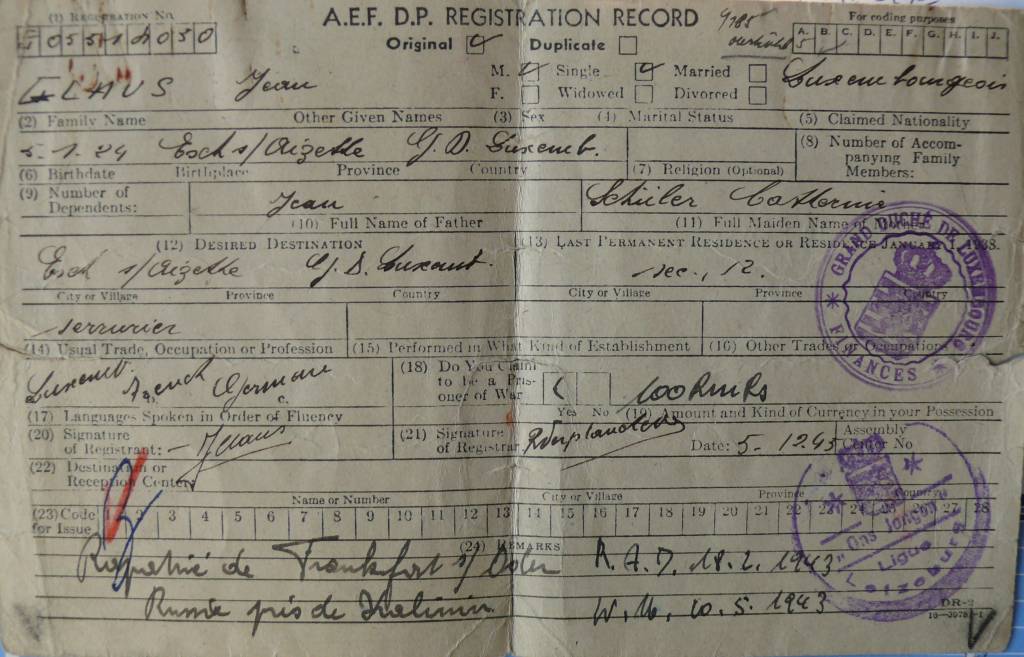 (1) Registration No.
A.E.F. D.P. REGISTRATION RECORD
For coding purposes
Original Duplicate
A. B. C. D. E. F. G. H. I. J.
M. Single Married
Jean Luxembourgeois
F. Widowed Divorced
(2) Family Name Other Given Names (3) Sex (4) Marital Status (5) Claimed Nationality
5.1.24 Esch s/Alzette G. D. Luxemb.
(8) Number of Accompanying Family Members:
(6) Birthdate Birthplace Province Country (7) Religion (Optional)
(9) Number of Dependents:
Jean Schüler Catherine
(10) Full Name of Father (11) Full Maiden Name of Mother
(12) Desired Destination (13) Last Permanent Residence or Residence January 1, 1938.
Esch s/Alzette G. D. Luxemb. sec., 12.
City or Village Province Country City or Village Province Country
serrurier
(14) Usual Trade, Occupation or Profession (15) Performed in What Kind of Establishment (16) Other Trades or Occupations
Luxemb. French German
(18) Do You Claim to be a Prisoner of War
Yes No
100 RMKs
(17) Languages Spoken in Order of Fluency (19) Amount and Kind of Currency in your Possession
(20) Signature of Registrant:
(21) Signature of Registrar:
Date: 5-12.45 Assembly Center No
(22) Destination or Reception Center:
Name or Number City or Village Province Country
(23) Code for Issue 1 2 3 4 5 6 7 8 9 10 11 12 13 14 15 16 17 18 19 20 21 22 23 24 25 26 27 28
(24) Remarks
Rapatrié de Frankfort s/Oder R.A.D. 18.2.1943
Russie près de Kalinin W.M. 10.5.1943
DR-2
GRAND DUCHÉ DE LUXEMBOURG
FINANCES
"Ons Jongen"
Ligue
Letzeburg